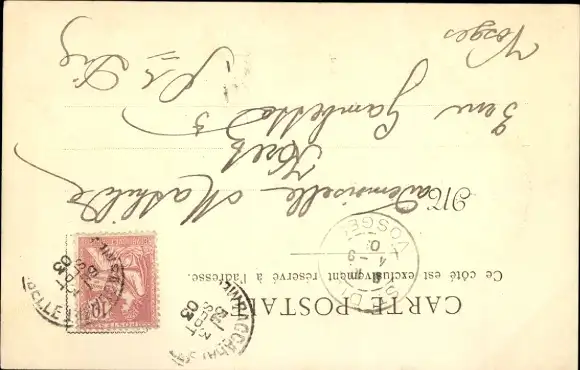 CARTE POSTALE
Ce côté est exclusivement réservé à l'adresse.
Mademoiselle Mathilde
3 rue Gambetta
St Dié
Vosges
VOSGES
10